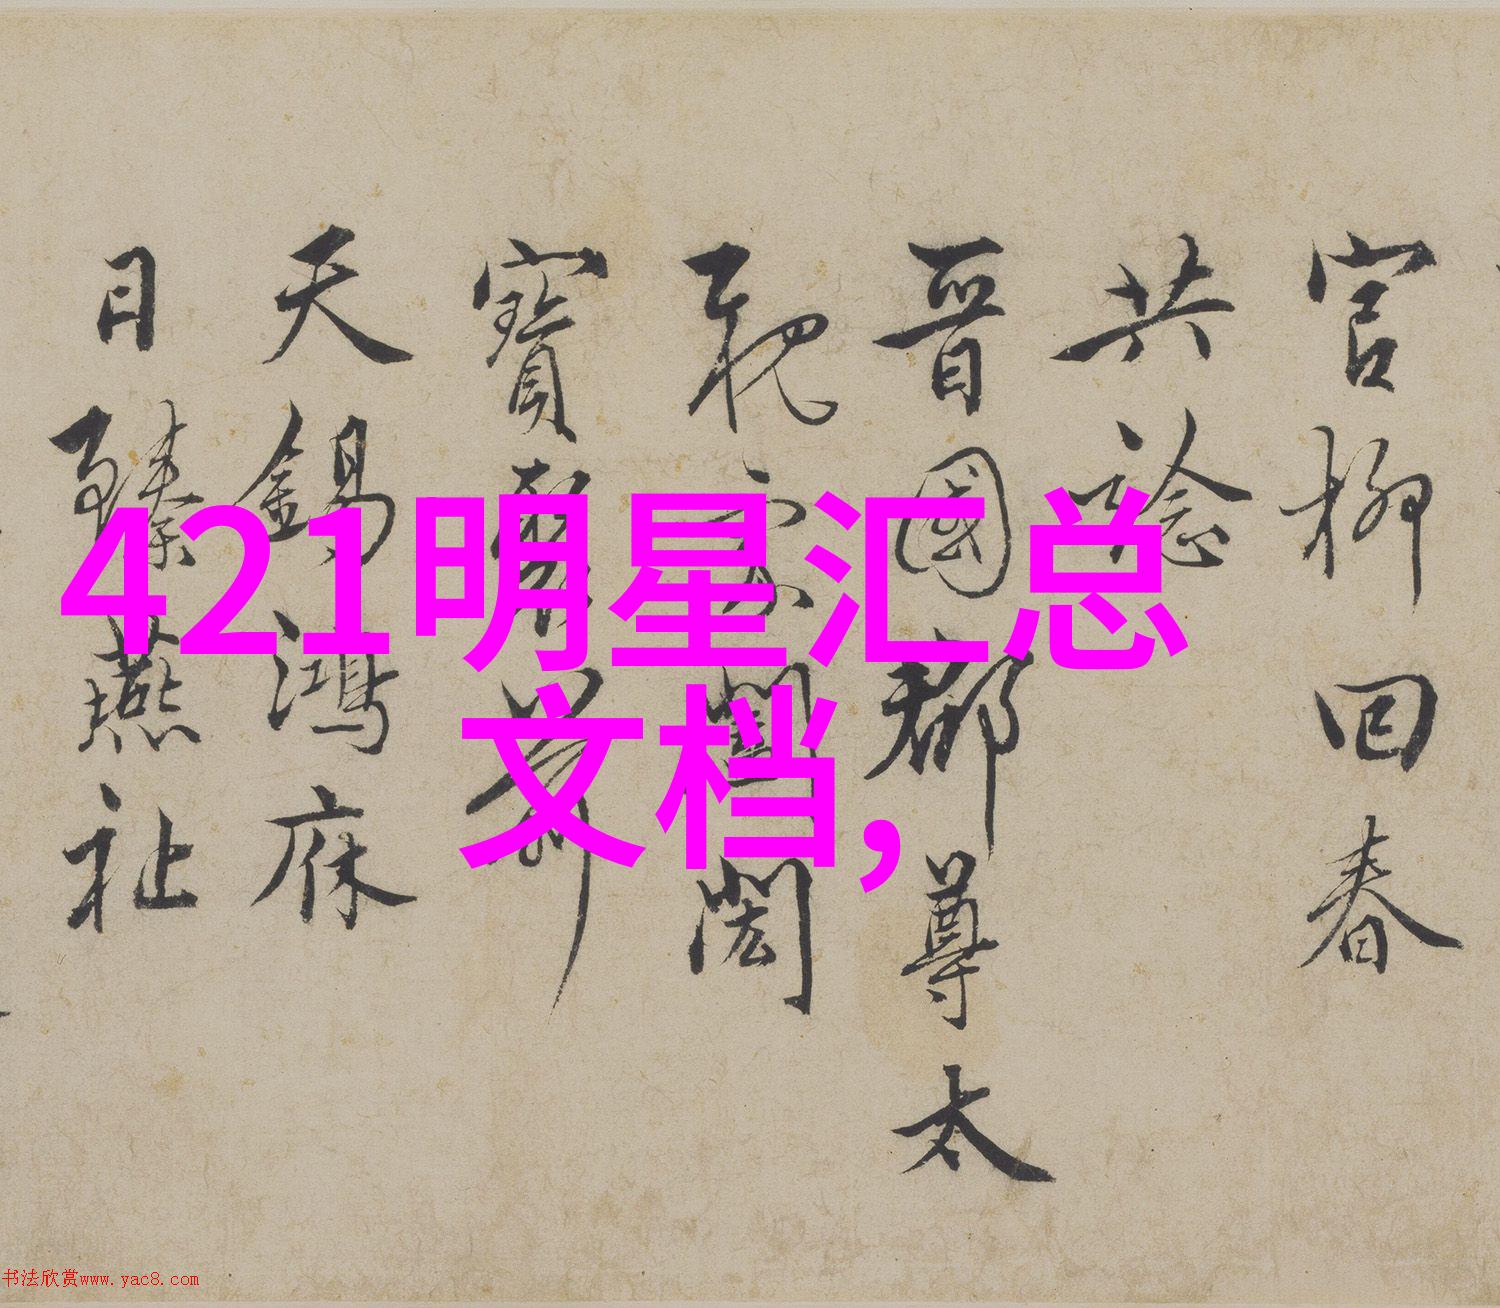 421明星汇总
文档,
官柳回春
共
晉國郡尊太
寶
天錫鴻庥
日臻燕祉
书法欣赏www.yac8.com